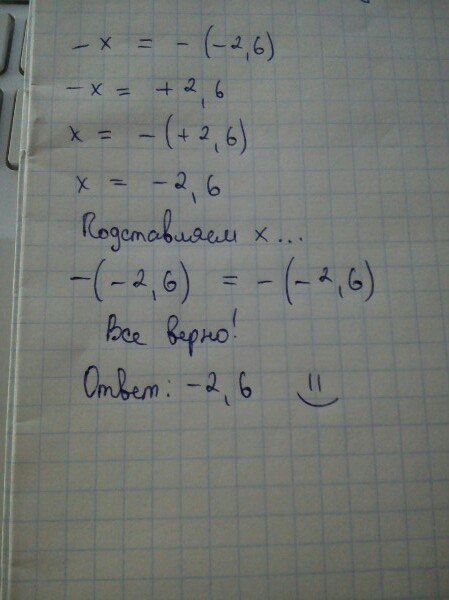 -x = -(-2,6)
-x = +2,6
x = -(+2,6)
x = -2,6
Подставляем x...
-(-2,6) = -(-2,6)
Все верно!
Ответ: -2,6